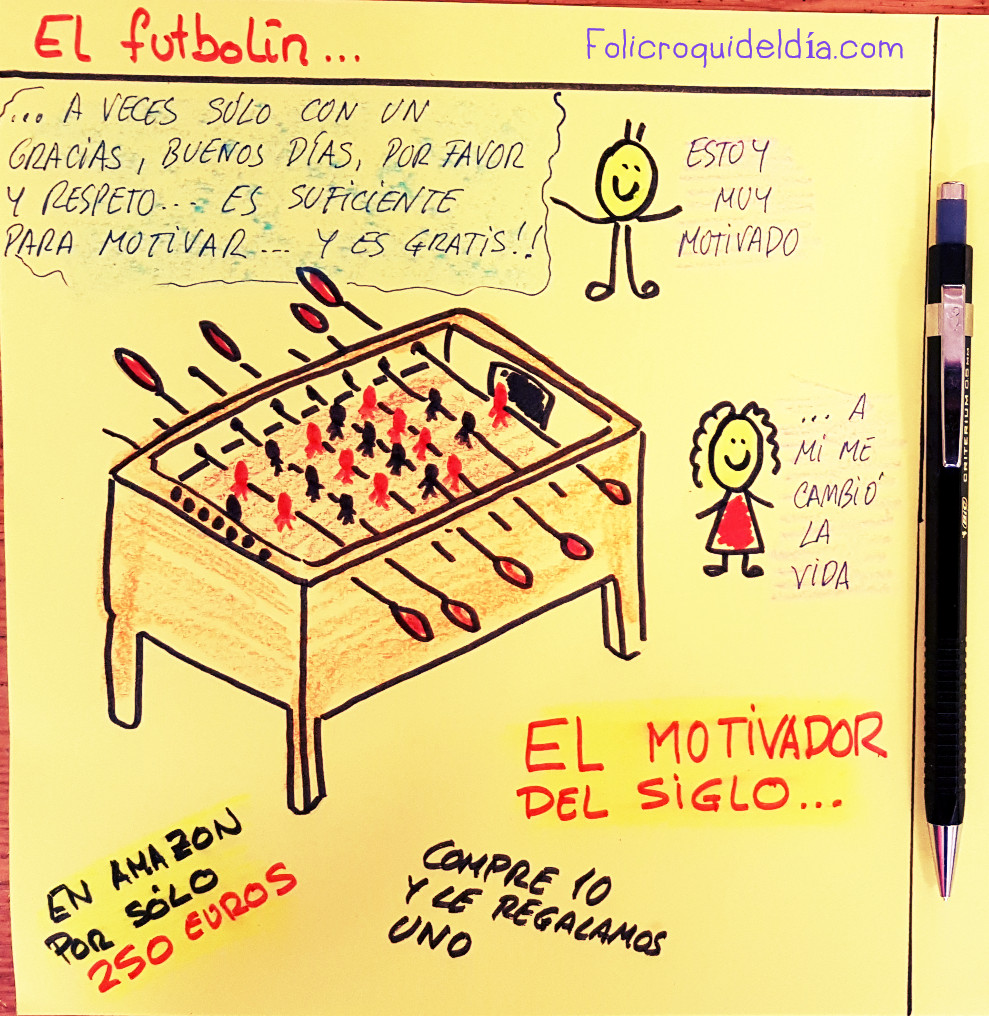 El futbolín...
Folicroquideldía.com
... A VECES SÓLO CON UN
GRACIAS, BUENOS DÍAS, POR FAVOR
Y RESPETO... ES SUFICIENTE
PARA MOTIVAR... Y ES GRATIS!!
ESTOY
MUY
MOTIVADO
... A
MI ME
CAMBIÓ
LA
VIDA
EL MOTIVADOR
DEL SIGLO...
EN AMAZON
POR SÓLO
250 EUROS
COMPRE 10
Y LE REGALAMOS
UNO
CRITERIUM